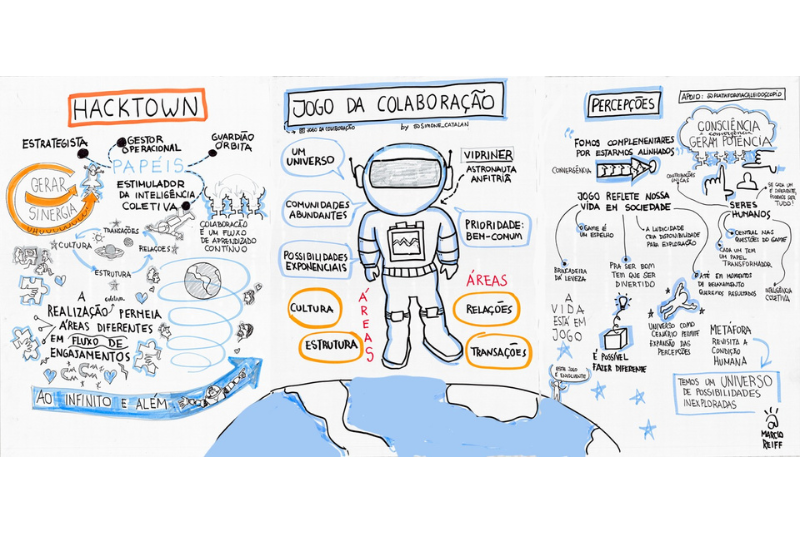 HACKTOWN
ESTRATEGISTA
GESTOR
OPERACIONAL
GUARDIÃO
ÓRBITA
PAPÉIS
GERAR
SINERGIA
ESTIMULADOR
DA INTELIGÊNCIA
COLETIVA
COLABORAÇÃO
É UM FLUXO
DE APRENDIZADO
CONTÍNUO
TRANSAÇÕES
CULTURA
RELAÇÕES
ESTRUTURA
A
REALIZAÇÃO PERMEIA
ÁREAS DIFERENTES
EM FLUXO DE
ENGAJAMENTOS
AO INFINITO E ALÉM
JOGO DA COLABORAÇÃO
JOGO DA COLABORAÇÃO
by @SIMONE_CATALAN
UM
UNIVERSO
VIDPRINER
ASTRONAUTA
ANFITRIÃ
COMUNIDADES
ABUNDANTES
PRIORIDADE:
BEM-COMUM
POSSIBILIDADES
EXPONENCIAIS
ÁREAS
ÁREAS
CULTURA
ESTRUTURA
RELAÇÕES
TRANSAÇÕES
PERCEPÇÕES
APOIO: @PLATAFORMACALEIDOSCOPIO
FOMOS COMPLEMENTARES
POR ESTARMOS ALINHADOS
CONVERGÊNCIA
CONSCIÊNCIA
GERAM POTÊNCIA
CONTRIBUIÇÕES
ÚNICAS
JOGO REFLETE NOSSA
VIDA EM SOCIEDADE
GAME É UM
ESPELHO
A LUDICIDADE
CRIA DISPONIBILIDADE
PARA EXPLORAÇÃO
BRINCADEIRA
DÁ LEVEZA
PRA SER BOM
TEM QUE SER
DIVERTIDO
SERES
HUMANOS
CENTRAL NAS
QUESTÕES DO GAME
CADA UM TEM
UM PAPEL
TRANSFORMADOR
ATÉ EM MOMENTOS
DE RELAXAMENTO
QUEREMOS RESULTADOS
INTELIGÊNCIA
COLETIVA
A
VIDA
ESTÁ EM
JOGO
ESTE JOGO
É ENVOLVENTE
É POSSÍVEL
FAZER DIFERENTE
UNIVERSO COMO
CENÁRIO PERMITE
EXPANSÃO DAS
PERCEPÇÕES
METÁFORA
REVISITA A
CONDIÇÃO
HUMANA
TEMOS UM UNIVERSO
DE POSSIBILIDADES
INEXPLORADAS
@
MARCIO
REIFF